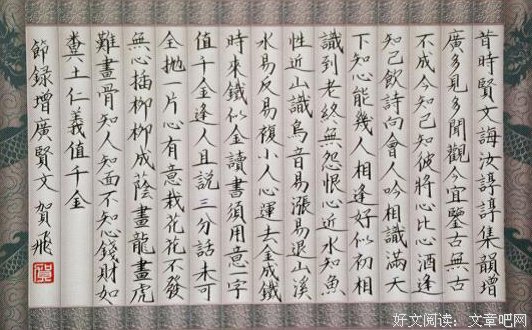 昔時賢文誨汝諄諄集韻增
廣多見多聞觀今宜鑒古無古
不成今知己知彼將心比心酒逢
知己飲詩向會人吟相識滿天
下知心能幾人相逢好似初相
識到老終無怨恨心近水知魚
性近山識鳥音易漲易退山溪
水易反易複小人心運去金成鐵
時來鐵似金讀書須用意一字
值千金逢人且説三分話未可
全拋一片心有意栽花花不發
無心插柳柳成蔭畫龍畫虎
難畫骨知人知面不知心錢財如
糞土仁義值千金
節録增廣賢文 賀飛
好文阅读：文章吧网